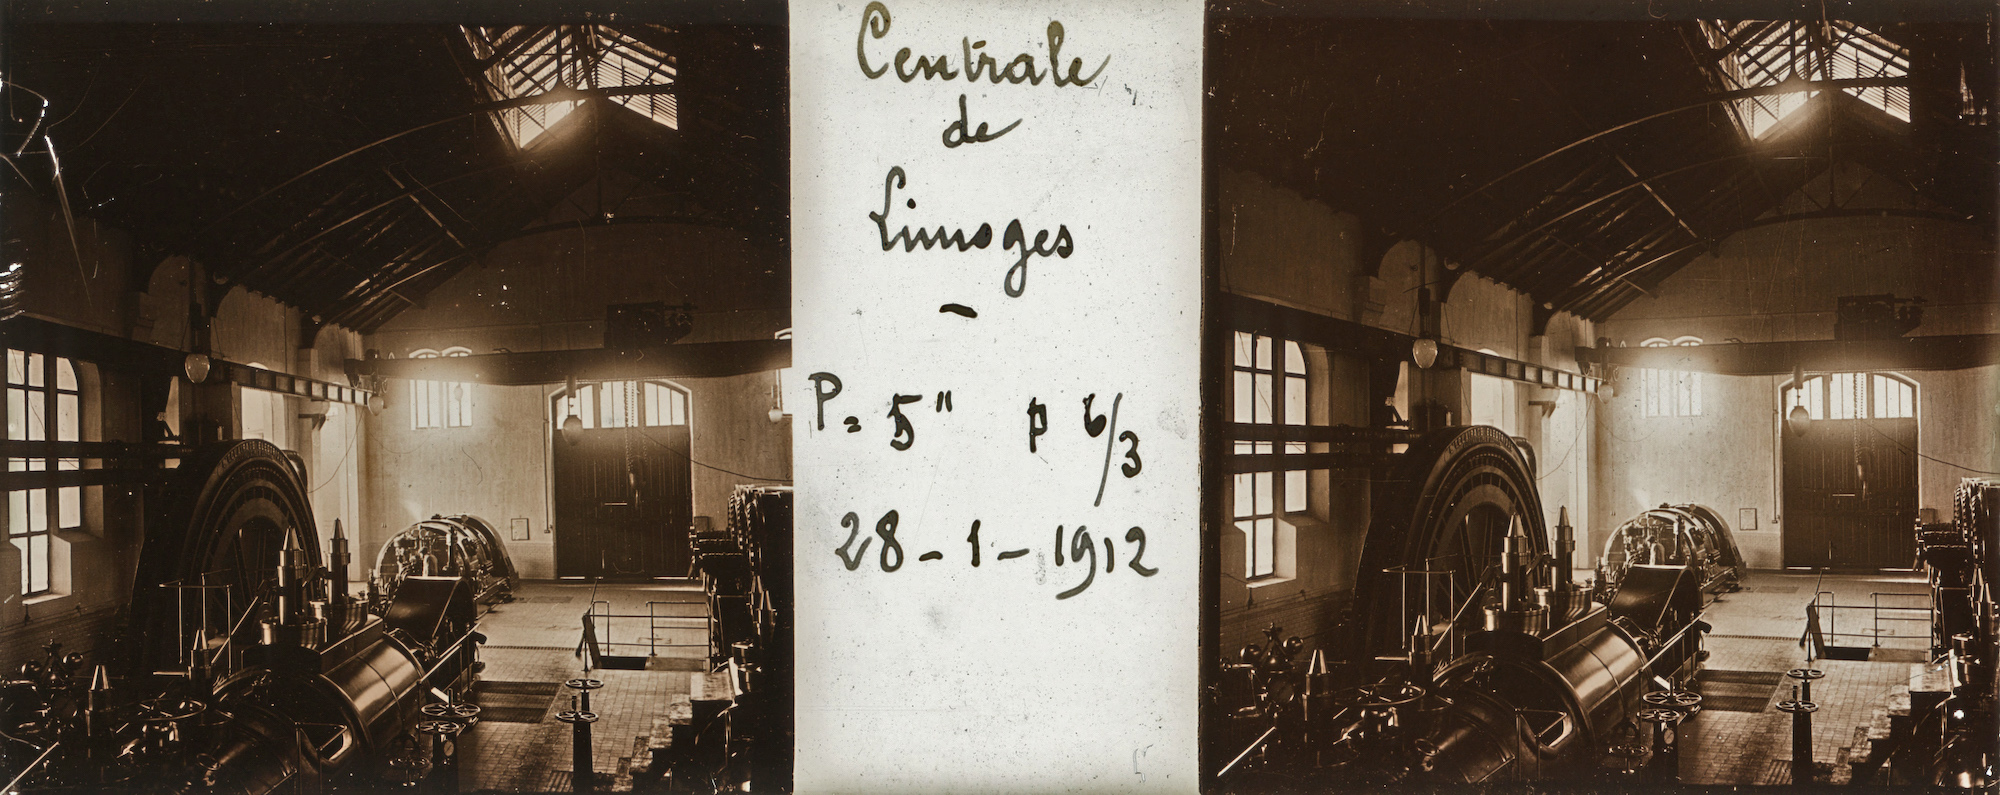 Centrale
de
Limoges
-
P= 5" p 6/3
28-1-1912